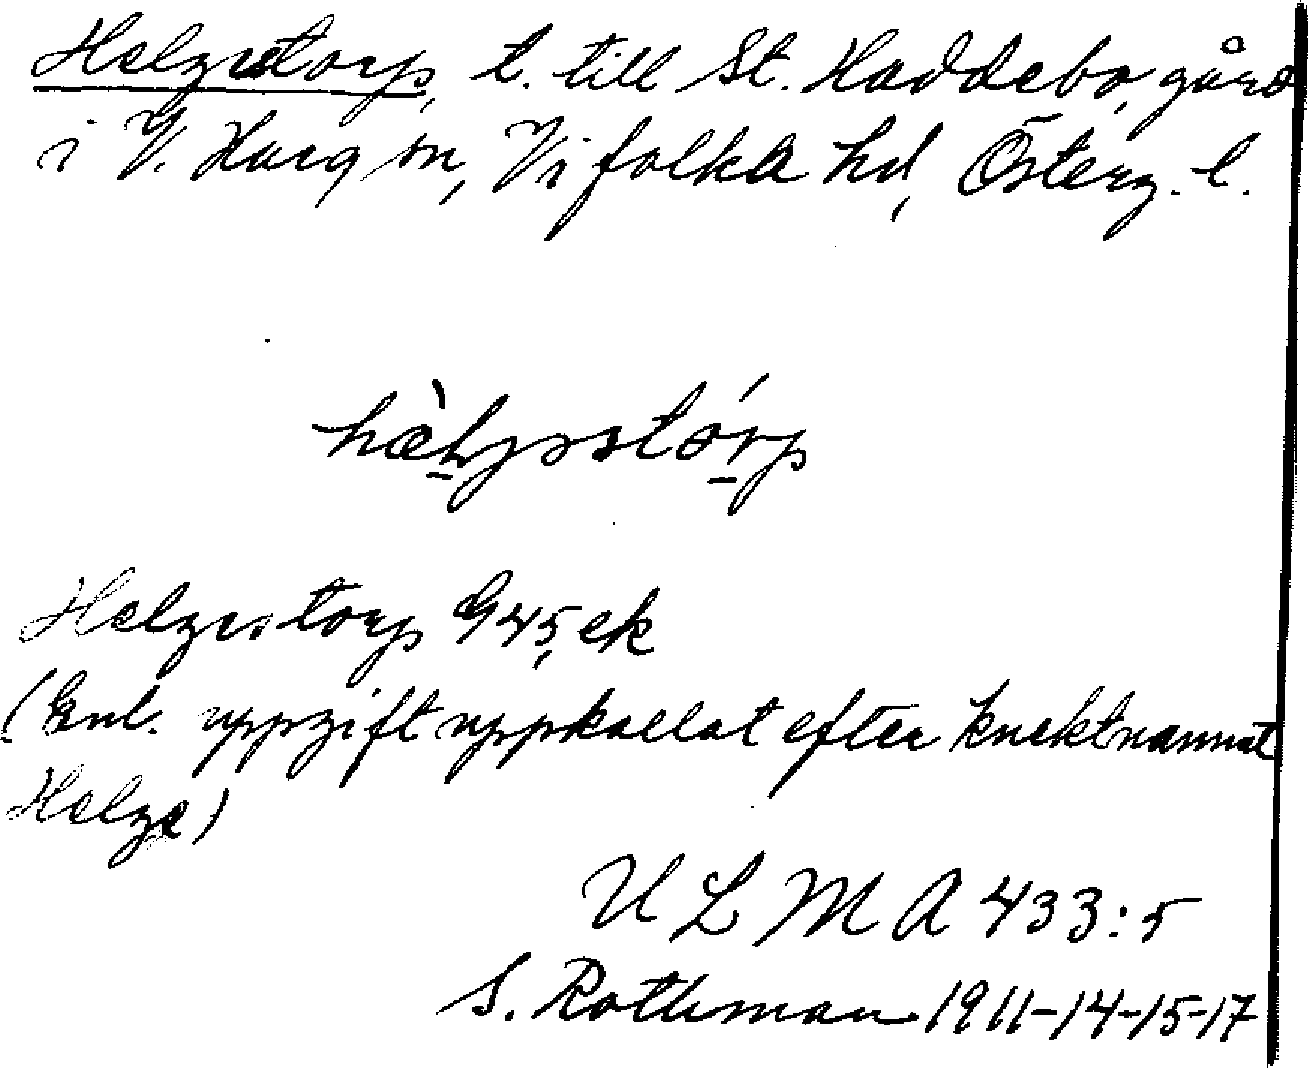 Helgestorp, t. till St. Haddebo, gård
i V. Harg sn, Vifolka hd, Österg. l.
hæ̀ljɷstórp
Helgestorp G45, ek
(Enl. uppgift uppkallat efter knektnamnet
Helge)
ULMA 433:5
S. Rothman 1911-14-15-17